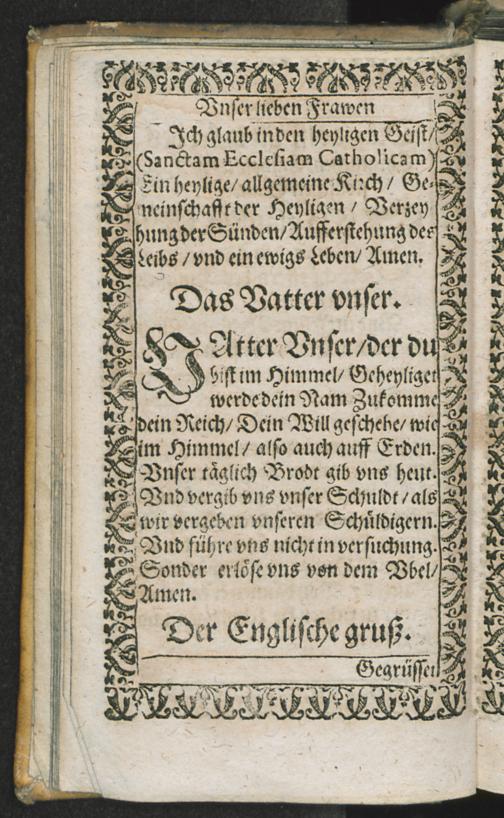 Vnser lieben Frawen
Ich glaub in den heyligen Geist/
(Sanctam Ecclesiam Catholicam)
Ein heylige/ allgemeine Kirch / Ge-
meinschafft der Heyligen / Verzey
hung der Sünden/ Aufferstehung des
Leibs / vnd ein ewigs Leben/ Amen.
Das Vatter vnser.
VAtter Vnser/ der du
bist im Himmel/ Geheyliget
werde dein Nam Zukomme
dein Reich/ Dein Will geschehe/ wie
im Himmel / also auch auff Erden.
Vnser täglich Brodt gib vns heut.
Vnd vergib vns vnser Schuldt / als
wir vergeben vnseren Schüldigern.
Vnd führe vns nicht in versuchung.
Sonder erlöse vns von dem Vbel/
Amen.
Der Englische gruß.
Gegrüsset